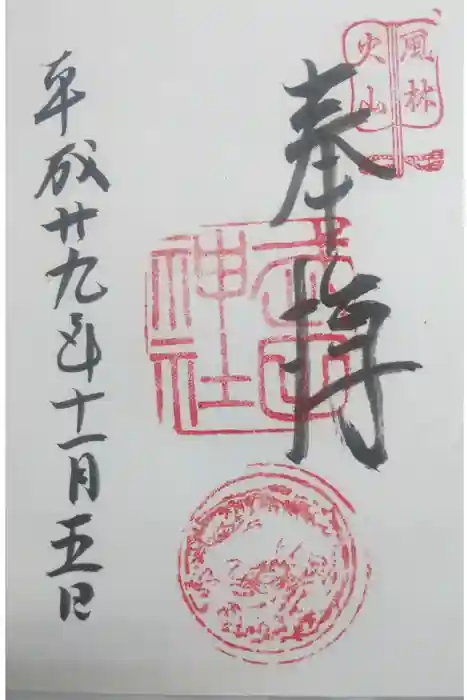 風林
火山
奉拝
武田
神社
平成廿九年十一月五日